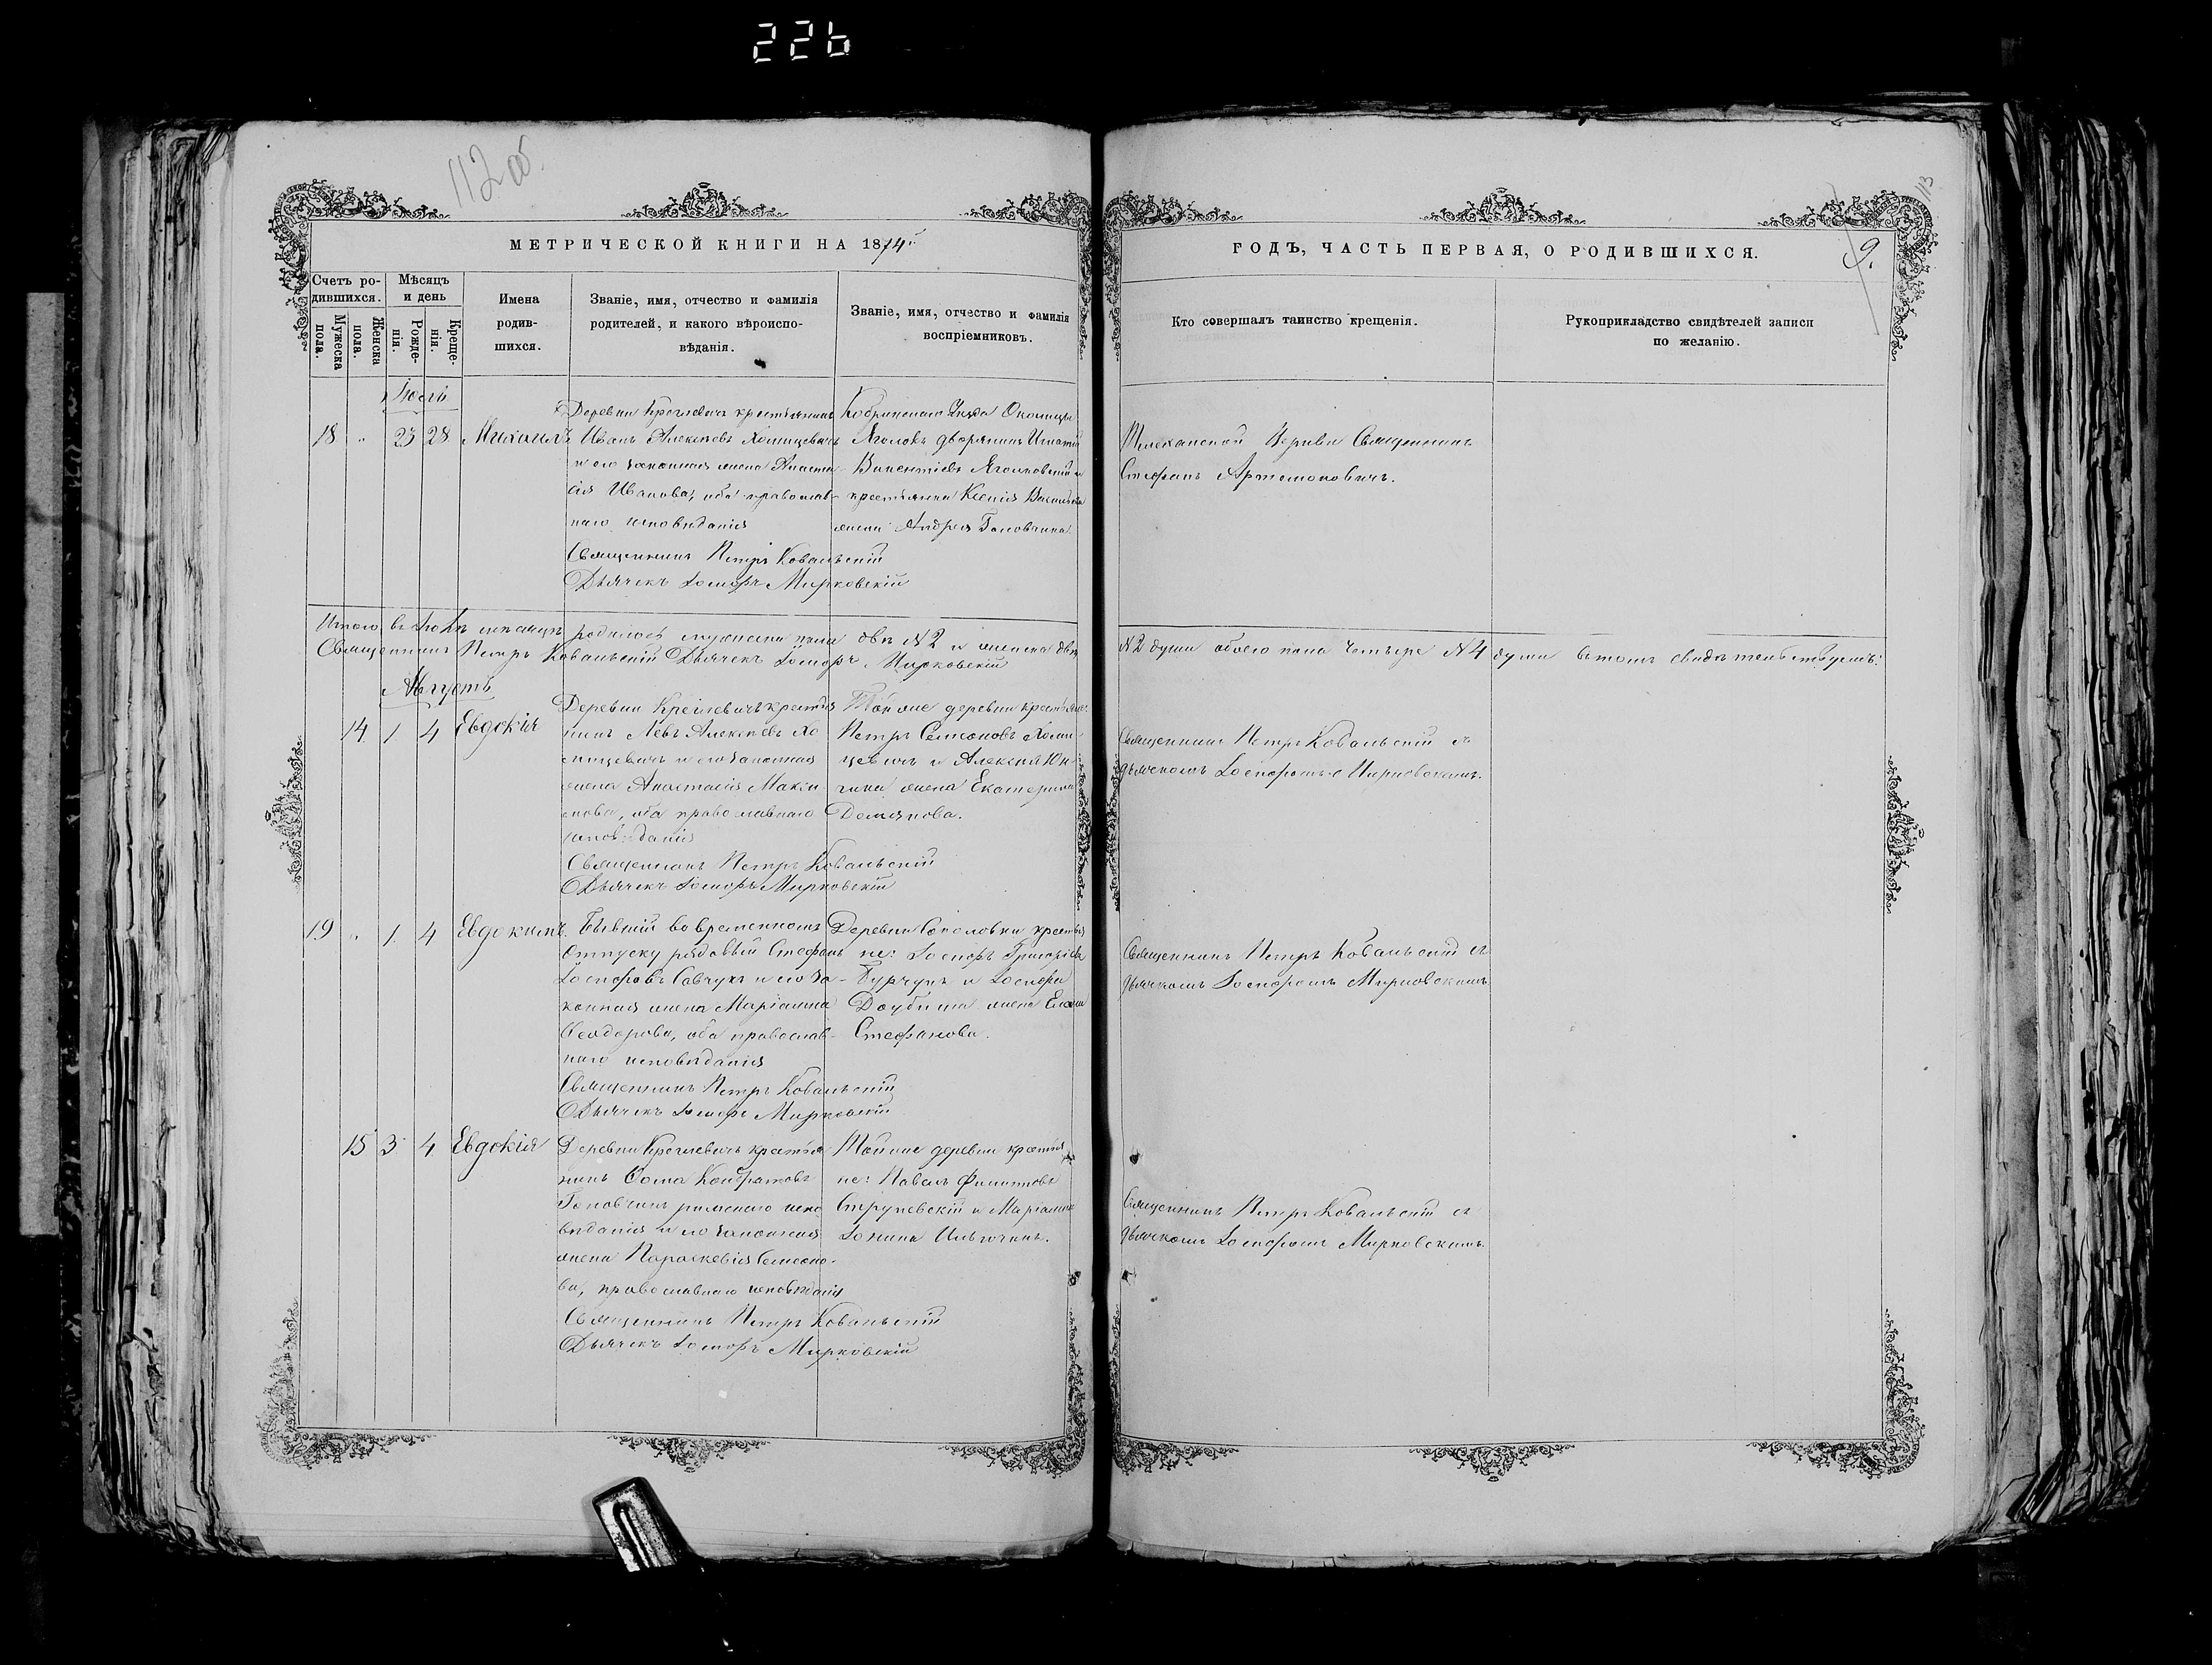 226
112 об.
113
МЕТРИЧЕСКОЙ КНИГИ НА 1874й
Счетъ ро-
дившихся.
Мужеска
пола.
Женска
пола.
Мѣсяцъ
и день
Рожде-
нія.
Креще-
нія.
Имена
родив-
шихся.
Званіе, имя, отчество и фамилія
родителей, и какого вѣроиспо-
вѣданія.
Званіе, имя, отчество и фамилія
воспріемниковъ.
ГОДЪ, ЧАСТЬ ПЕРВАЯ, О РОДИВШИХСЯ.
9.
Кто совершалъ таинство крещенія.
Рукоприкладство свидѣтелей записи
по желанію.
Іюль
18 " 23 28 Михаилъ
Деревни крестьянинъ
Иванъ Алексѣевъ Хомицевичъ
и его законная жена Анаста-
сія Иванова, оба православ-
наго исповѣданія
Священникъ Петръ Ковальскій
Дьячекъ Іосифъ Мирковскій
Кобринскаго Уѣзда Околицы
дворянинъ Игнатій
Викентіевъ Яголковскій и
крестьянка Ксенія Васильева
жена Андрея Головчика
Церкви Священникъ
Стефанъ Артемоновичъ.
Итого въ Іюлѣ мѣсяцѣ родилось мужеска пола двѣ №2 и женска двѣ
№2 души обоего пола четыре №4 души въ томъ свидѣтельствуемъ:
Священникъ Петръ Ковальскій Дьячекъ Іосифъ Мирковскій
Августъ
14 1 4 Евдокія
Деревни крестья
нинъ Левъ Алексѣевъ Хо
мицевичъ и его законная
жена Анастасія Макси
мова, оба православнаго
исповѣданія
Священникъ Петръ Ковальскій
Дьячекъ Іосифъ Мирковскій
Той же деревни крестьяне:
Петръ Семеоновъ Хоми-
цевичъ и Алексѣя
жена Екатерина
Демянова.
Священникъ Петръ Ковальскій съ
дьячкомъ Іосифомъ Мирковскимъ.
19 " 1 4 Евдокимъ
Бывшій во временномъ
отпуску рядовый Стефанъ
Іосифовъ Савчукъ и его за-
конная жена Маріанна
Ѳеодорова, оба православ-
наго исповѣданія
Священникъ Петръ Ковальскій
Дьячекъ Іосифъ Мирковскій
Деревни крестья
не: Іосифъ Григоріевъ
и Іосифа
жена
Стефанова.
Священникъ Петръ Ковальскій съ
дьячкомъ Іосифомъ Мирковскимъ
15 3 4 Евдокія
Деревни крестья
нинъ Ѳома Кондратовъ
Головчикъ римскаго испо
вѣданія и его законная
жена Параскевія Семеоно-
ва, православнаго исповѣданія
Священникъ Петръ Ковальскій
Дьячекъ Іосифъ Мирковскій
Той же деревни крестья
не: Павелъ Филиповъ
и Маріанна
Священникъ Петръ Ковальскій съ
дьячкомъ Іосифомъ Мирковскимъ.